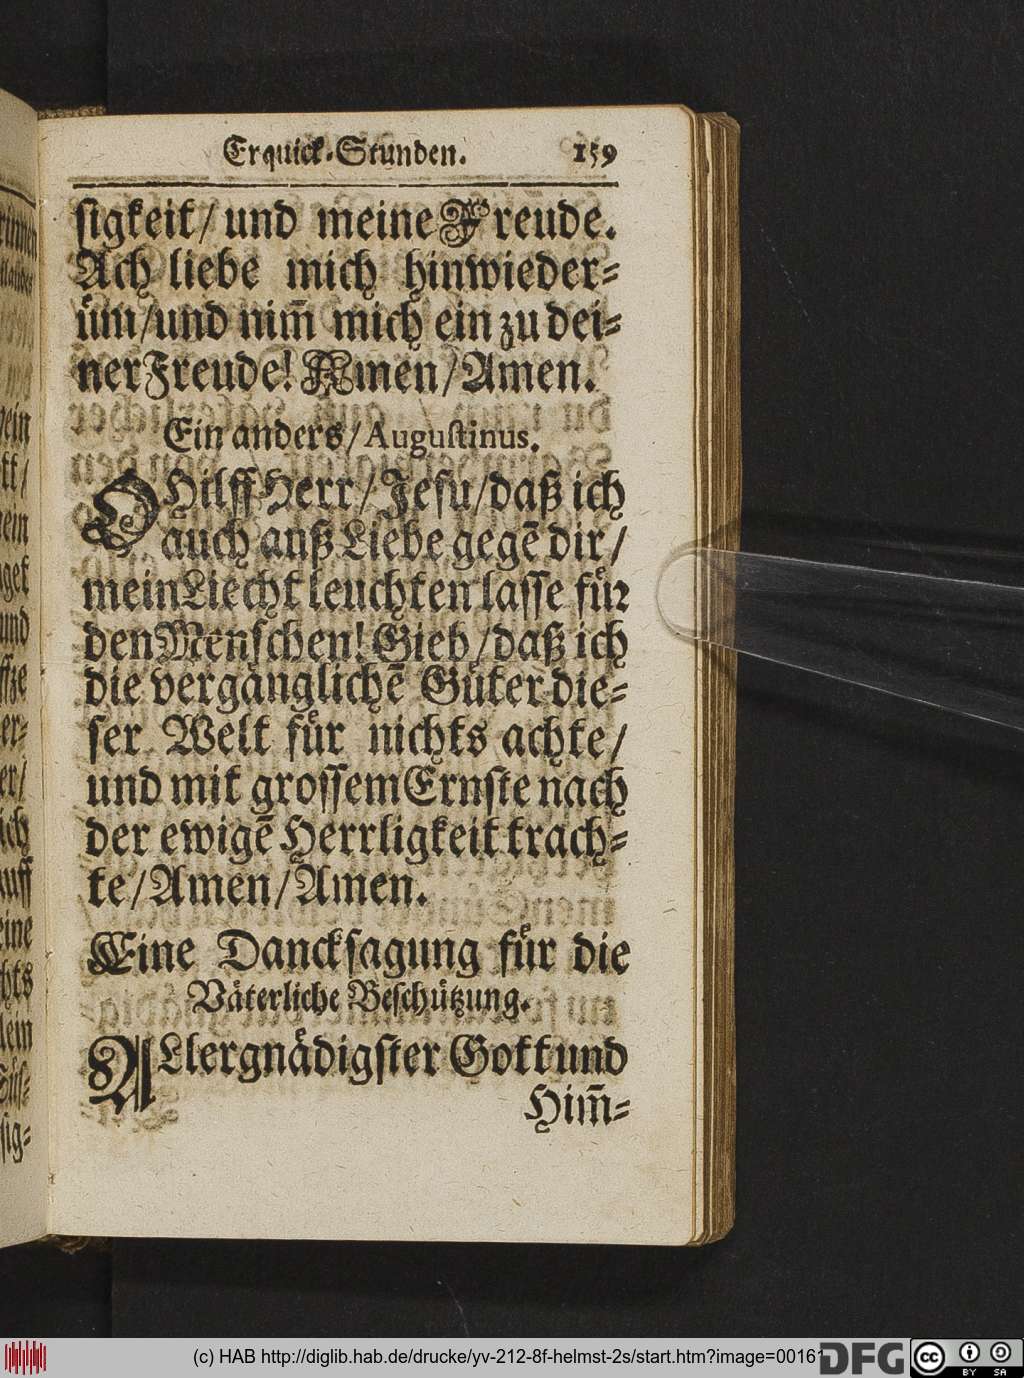 Erquick-Stunden. 159
sigkeit/ und meine Freude.
Ach liebe mich hinwieder-
üm/und nim̃ mich ein zu dei-
ner Freude! Amen/Amen.
Ein anders/Augustinus.
O Hilff Herr/Jesu/daß ich
auch auß Liebe gegẽ dir/
mein Liecht leuchten lasse für
den Menschen! Gieb/daß ich
die vergänglichẽ Güter die-
ser Welt für nichts achte/
und mit grossem Ernste nach
der ewigẽ Herrligkeit trach-
te/Amen/Amen.
Eine Dancksagung für die
Väterliche Beschützung.
ALlergnädigster Gott und
Him̃-
(c) HAB http://diglib.hab.de/drucke/yv-212-8f-helmst-2s/start.htm?image=00161
DFG
cc BY SA